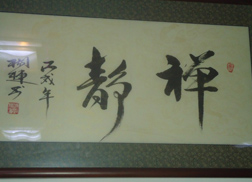 禅
静
丙戌年